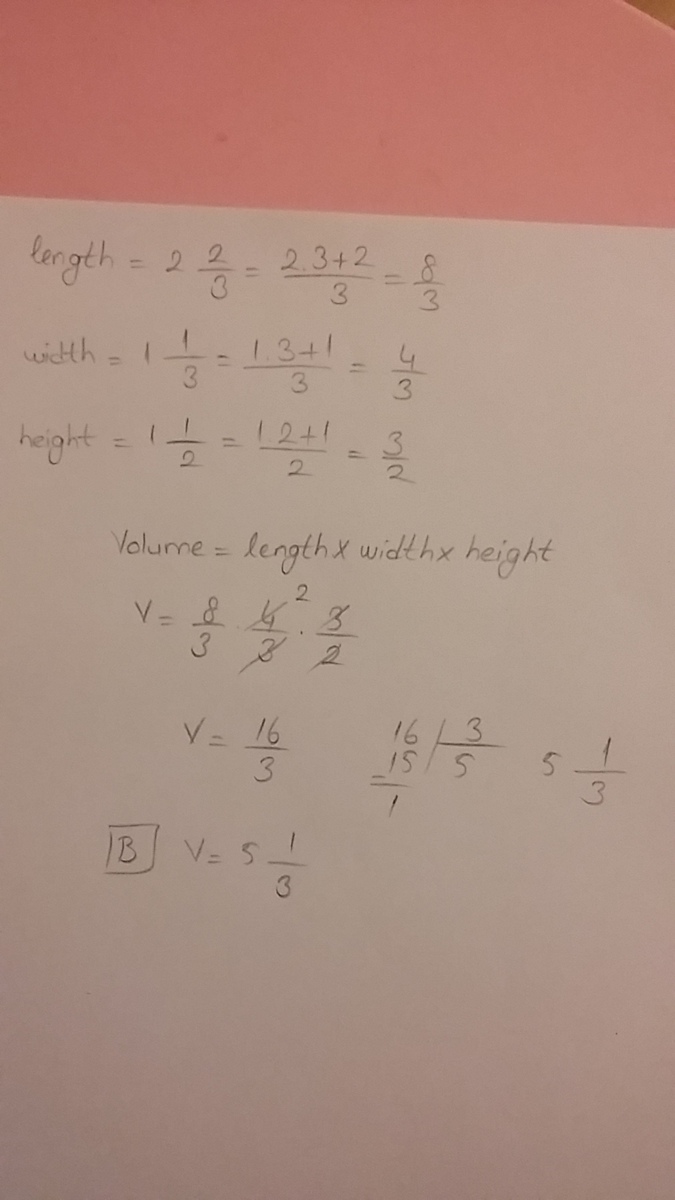 length = 2 2/3 = 2.3+2/3 = 8/3
width = 1 1/3 = 1.3+1/3 = 4/3
height = 1 1/2 = 1.2+1/2 = 3/2
Volume = length x width x height
V = 8/3 . 4/3 2 . 3/2
V = 16/3 16 3 5 1/3
-15 5
1
B V = 5 1/3